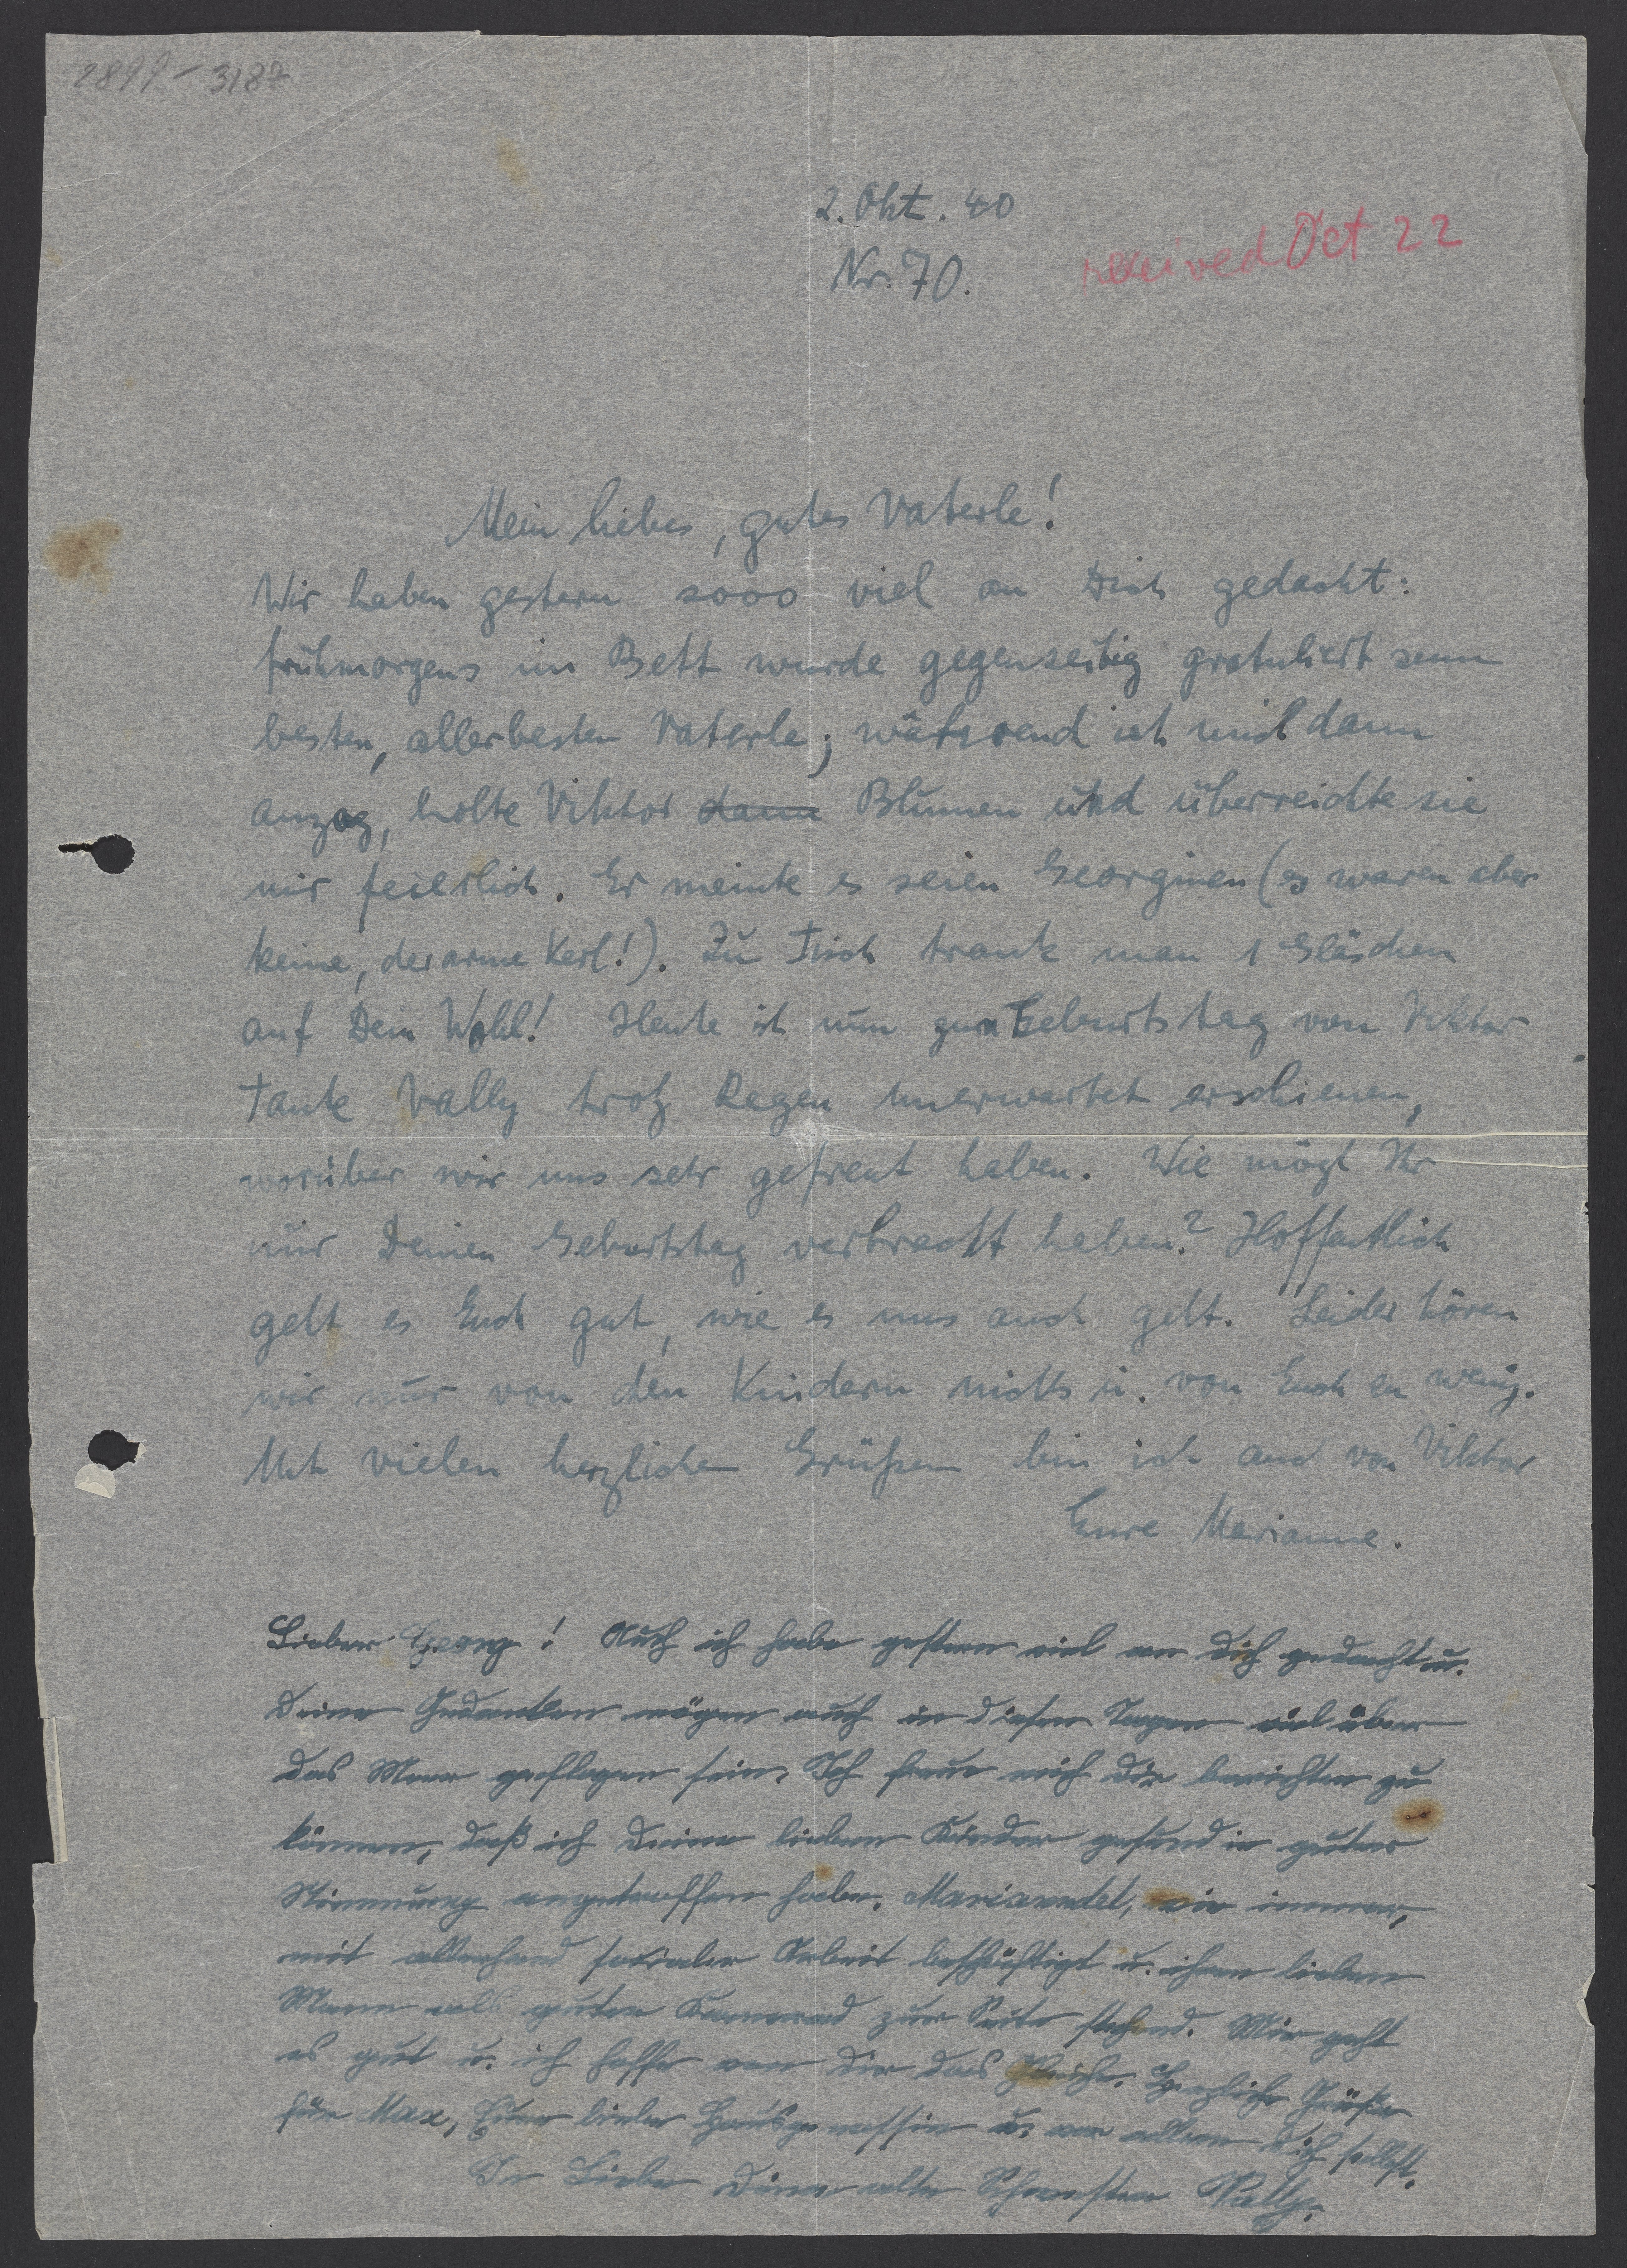 2899-3187
2. Okt. 40
received Oct 22
Nr. 70.
Mein liebes, gutes Vaterle!
Wir haben gestern sooo viel an Dich gedacht:
frühmorgens im Bett wurde gegenseitig gratuliert zum
besten, allerbesten Vaterle; während ich mich dann
anzog, holte Viktor dann Blumen und überreichte sie
mir feierlich. Er meinte es seien Georginen (es waren aber
keine, der arme Kerl!). Zu Tisch trank man 1 Gläschen
auf Dein Wohl! Heute ist nun zum Geburtstag von Viktor
Tante Vally trotz Regen unerwartet erschienen,
worüber wir uns sehr gefreut haben. Wie mögt Ihr
nur Deinen Geburtstag verbracht haben? Hoffentlich
geht es Euch gut, wie es uns auch geht. Leider hören
wir nur von den Kindern nichts u. von Euch so wenig.
Mit vielen herzlichen Grüßen bin ich auch von Viktor
Eure Marianne.
Lieber Georg! Auch ich habe gestern viel an Dich gedacht u.
Deine Gedanken mögen auch in diesen Tagen viel über
das Meer geflogen sein. Ich freue mich Dir berichten zu
können, daß ich Deine lieben Kinder gesund in guter
Stimmung angetroffen habe. Mariandel, wie immer,
mit allerhand sozialer Arbeit beschäftigt u. ihrem lieben
Mann als guter Kamerad zur Seite stehend. Mir geht
es gut u. ich hoffe von Dir das Gleiche. Herzliche Grüße
für Max, Eure liebe Hausgenossin u. vor allem Dich selbst.
In Liebe Deine alte Schwester Vally.